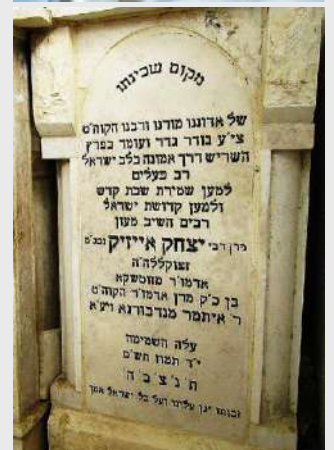 מקום שכינתו
של אדוננו מורנו ורבנו הקוה"ט
צי"ע גודר גדר ועומד בפרץ
השריש דרך אמונה בלב ישראל
רב פעלים
למען שמירת שבת קדש
ולמען קדושת ישראל
רבים השיב מעון
מרן רבי יצחק אייזיק
זצוקללה"ה
אדמו"ר
בן כ"ק מרן אדמו"ר הקוה"ט
ר' איתמר מנדבורנא זיע"א
עלה השמימה
י"ד תמוז תש"ם
ת' נ' צ' ב' ה'
זכותו יגן עלינו ועל כל ישראל אמן